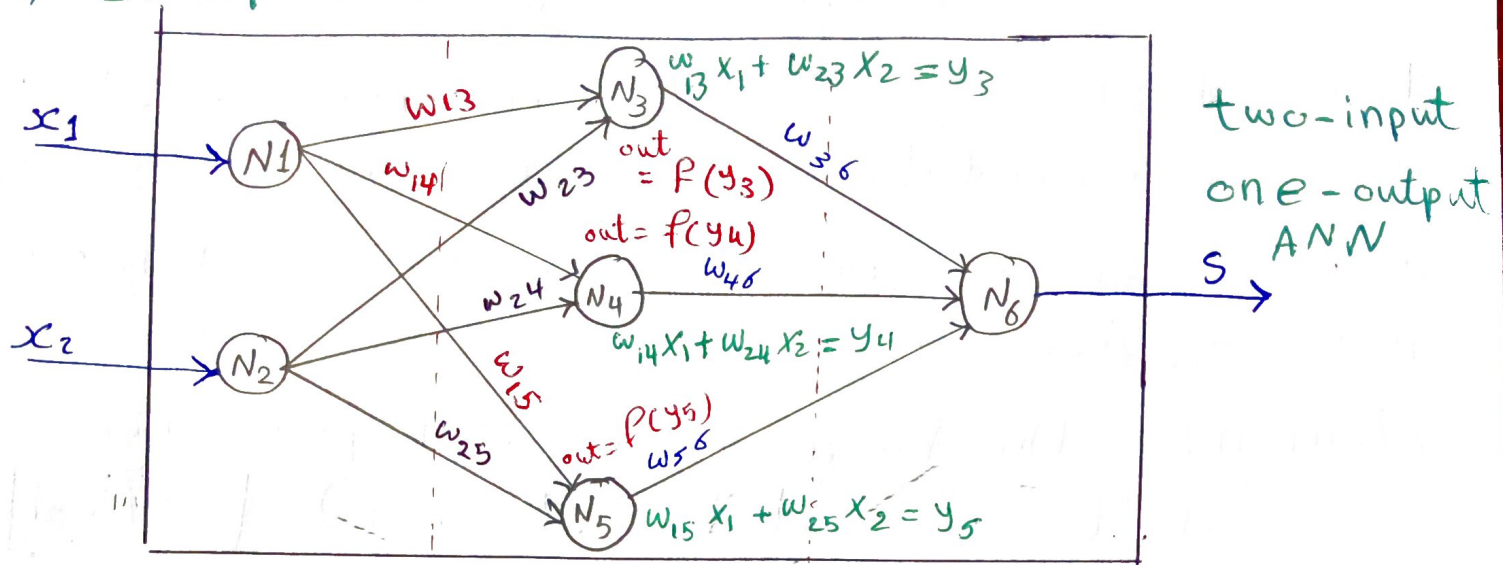 x1
x2
N1
N2
w13
w14
w23
w24
w15
w25
N3
w13 x1 + w23 x2 = y3
out
= f(y3)
out = f(y4)
N4
w14 x1 + w24 x2 = y4
out = f(y5)
N5
w15 x1 + w25 x2 = y5
w36
w46
w56
N6
S
two-input
one-output
ANN